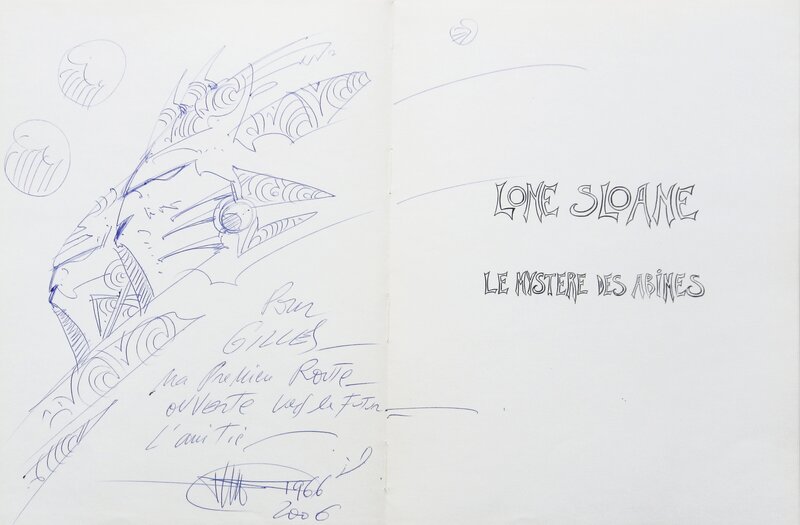 Pour
GILLES
Ma Premier Route
ouverte vers le Futur
L'amitié
1966
2006
LONE SLOANE
LE MYSTERE DES ABIMES